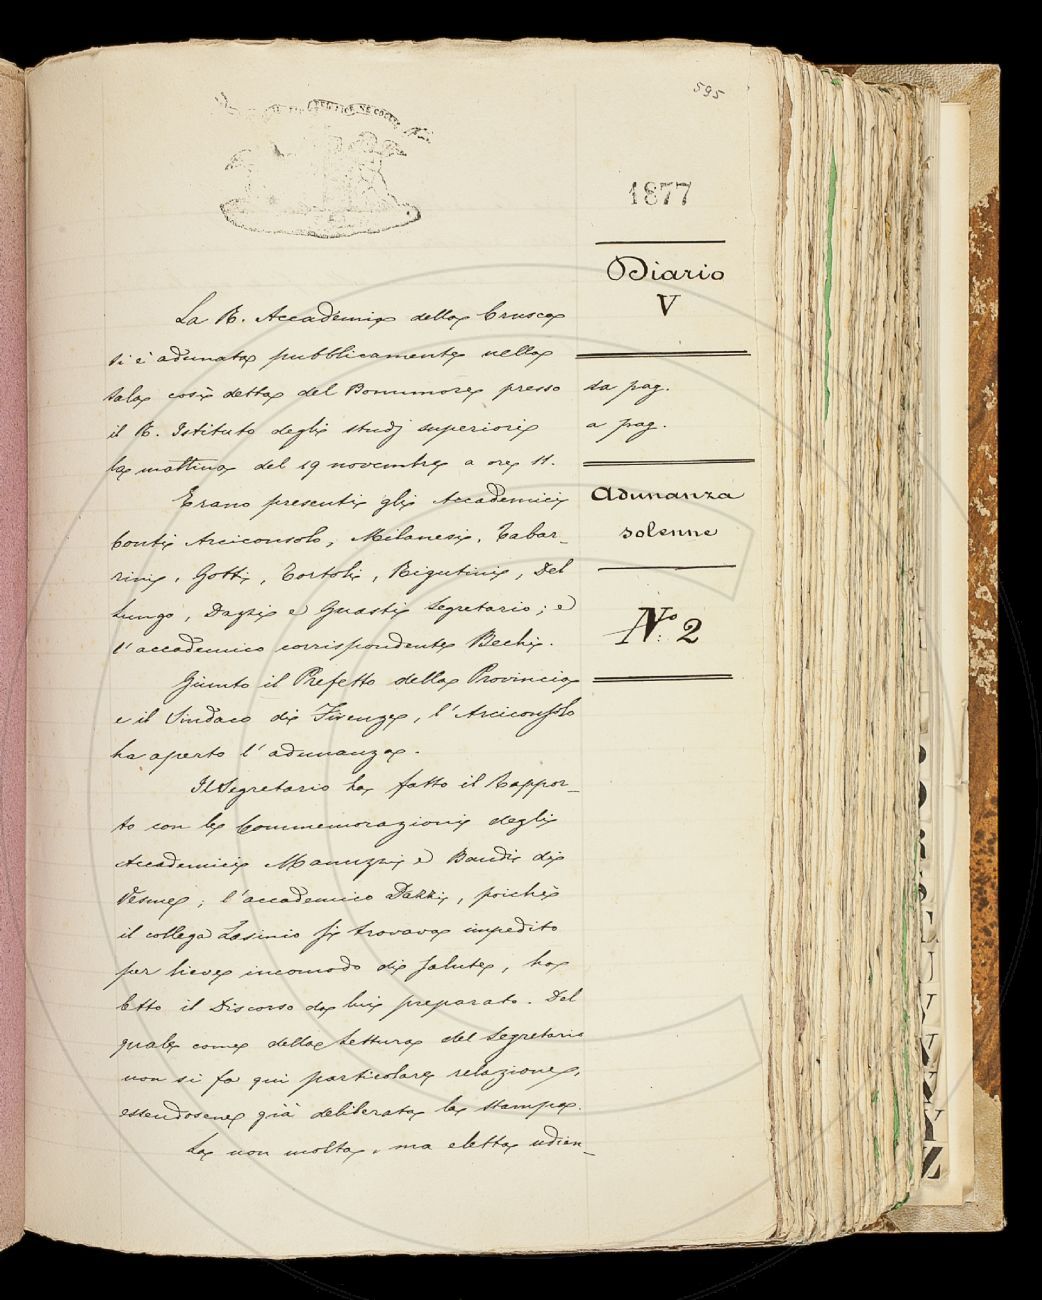 595
1877
Diario
V
da pag.
a pag.
Adunanza
solenne
N.º 2
La R. Accademia della Crusca
si è adunata pubblicamente nella
sala così detta del Buonumore presso
il R. Istituto degli studj superiori
la mattina del 19 novembre a ore 11.
Erano presenti gli Accademici
Conti Arciconsolo, Milanesi, Tabar-
rini, Gotti, Tortoli, Rigutini, Del
Lungo, Dazzi e Guasti Segretario; e
l'accademico corrispondente Bechi.
Giunto il Prefetto della Provincia
e il Sindaco di Firenze, l'Arciconsolo
ha aperto l'adunanza.
Il Segretario ha fatto il Rappor-
to con le Commemorazioni degli
Accademici Manuzzi e Baudi di
Vesme; l'accademico Dazzi, poichè
il collega Lasinio si trovava impedito
per lieve incomodo di salute, ha
letto il Discorso da lui preparato. Del
quale come della Lettura del Segretario
non si fa qui particolare relazione,
essendosene già deliberata la stampa.
La non molta, ma eletta udien-